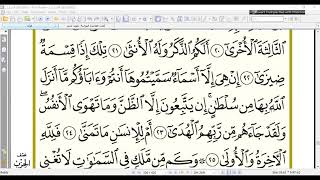 الثَّالِثَةَ الْأُخْرَىٰ ٢٠ أَلَكُمُ الذَّكَرُ وَلَهُ الْأُنثَىٰ ٢١ تِلْكَ إِذًا قِسْمَةٌ
ضِيزَىٰ ٢٢ إِنْ هِيَ إِلَّا أَسْمَاءٌ سَمَّيْتُمُوهَا أَنتُمْ وَآبَاؤُكُم مَّا أَنزَلَ
اللَّهُ بِهَا مِن سُلْطَانٍ ۚ إِن يَتَّبِعُونَ إِلَّا الظَّنَّ وَمَا تَهْوَى الْأَنفُسُ ۖ
وَلَقَدْ جَاءَهُم مِّن رَّبِّهِمُ الْهُدَىٰ ٢٣ أَمْ لِلْإِنسَانِ مَا تَمَنَّىٰ ٢٤ فَلِلَّهِ
الْآخِرَةُ وَالْأُولَىٰ ٢٥ ۞ وَكَم مِّن مَّلَكٍ فِي السَّمَاوَاتِ لَا تُغْنِي